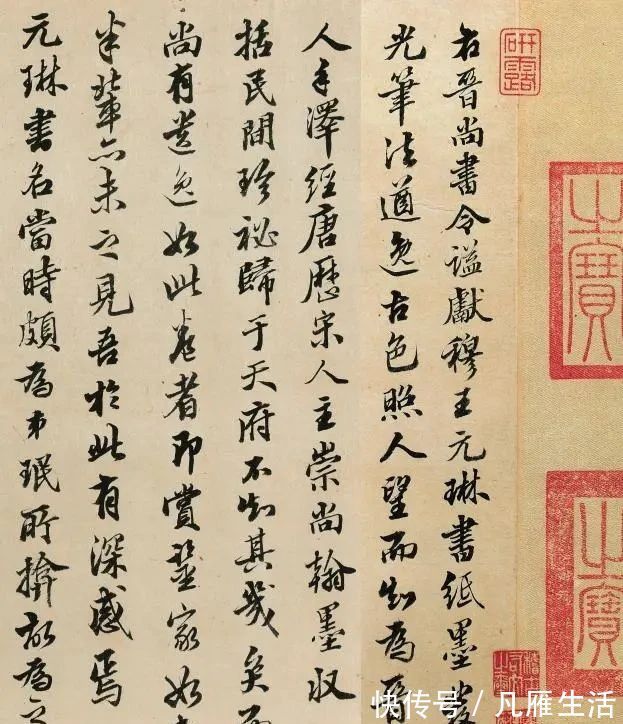 右晉尚書令諡獻穆王元琳書紙墨發
光筆法遒逸古色照人望而知為
人手澤經唐歷宋人主崇尚翰墨収
括民間珍祕歸于天府不知其幾矣而
尚有遺逸如此卷者即賞鑒家如
米輩亦未之見吾於此有深感焉
元琳書名當時頗為弟珉所揜故為之
研露
之寶
之寶
快传号／凡雁生活